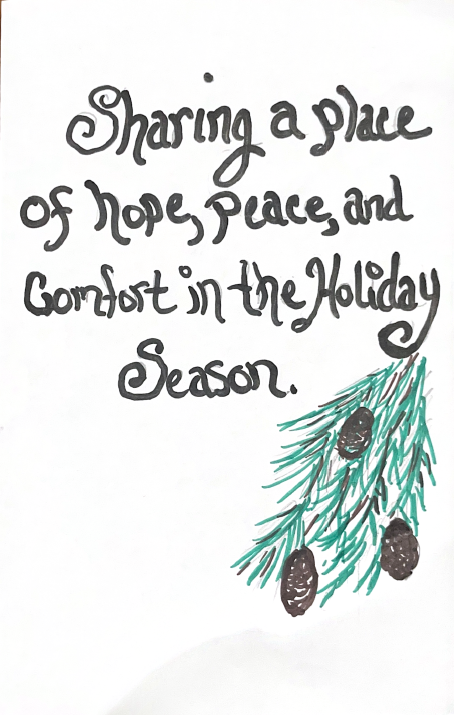 Sharing a place
of hope, peace, and
Comfort in the Holiday
Season.